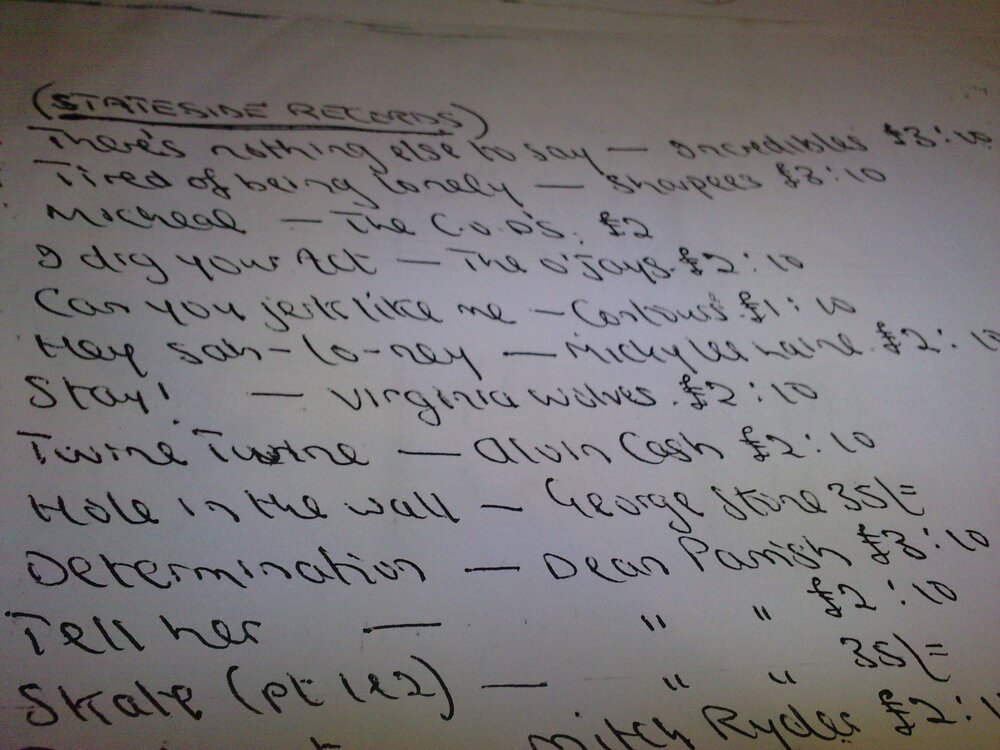 (STATESIDE RECORDS)
There's nothing else to say — Incredibles £3:10
Tired of being lonely — Sharpees £3:10
Micheal — The C.O.D's. £2
I dig your Act — The O'Jays. £2:10
Can you jerk like me — Contours. £1:10
Hey Sah-lo-ney — Micky Lee Lane. £2:10
Stay! — Virginia Wolves. £2:10
Twine Twine — Alvin Cash £2:10
Hole in the wall — George Stone 35/=
Determination — Dean Parrish £3:10
Tell her — " " £2:10
Skate (pt 1&2) — " " 35/=
Mitch Ryder £2:1